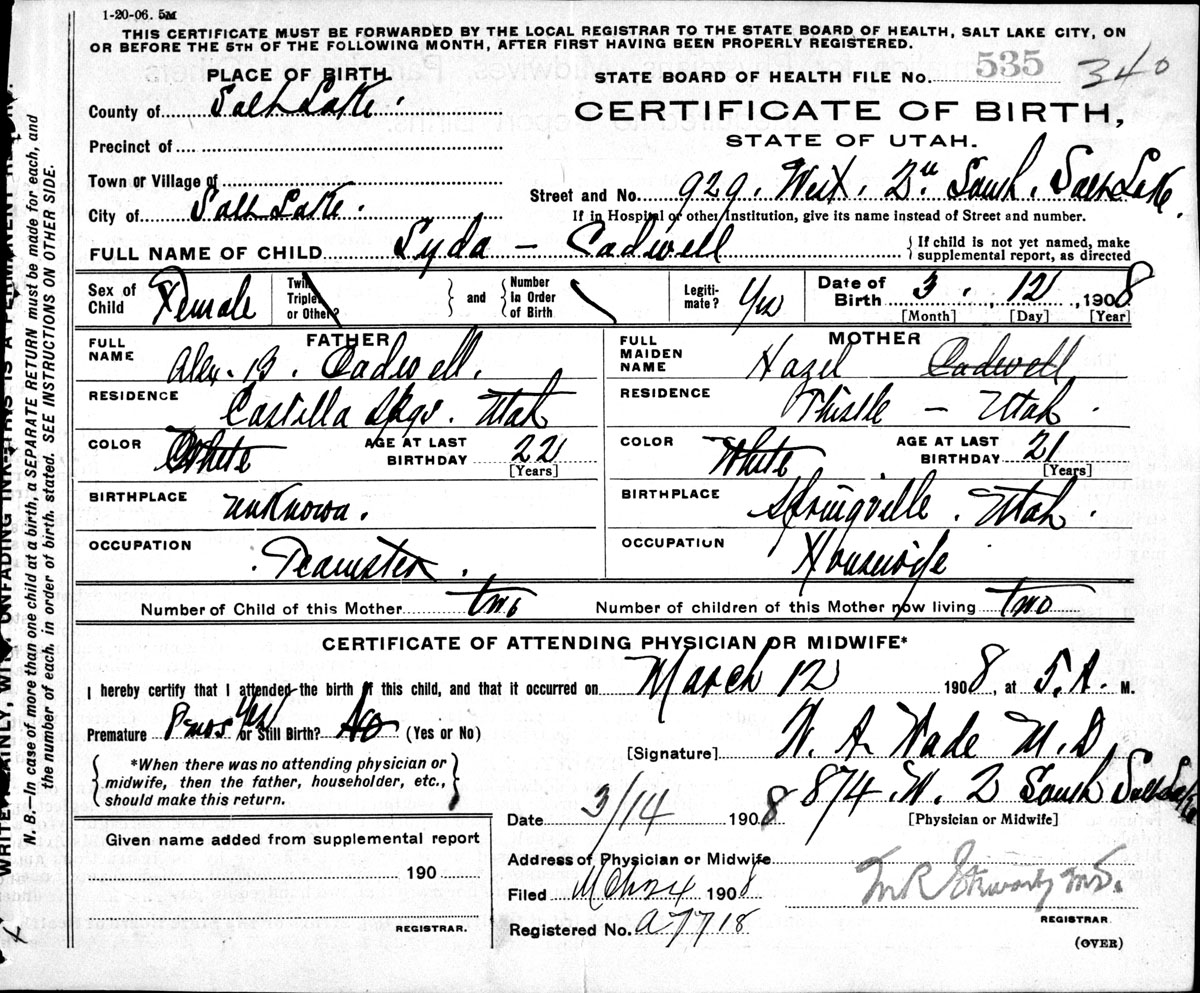 1-20-06. 5M
THIS CERTIFICATE MUST BE FORWARDED BY THE LOCAL REGISTRAR TO THE STATE BOARD OF HEALTH, SALT LAKE CITY, ON
OR BEFORE THE 5TH OF THE FOLLOWING MONTH, AFTER FIRST HAVING BEEN PROPERLY REGISTERED.
PLACE OF BIRTH.
STATE BOARD OF HEALTH FILE No. 535 340
County of Salt Lake.
CERTIFICATE OF BIRTH,
Precinct of
STATE OF UTAH.
Town or Village of
Street and No. 929. West. 2nd South. Salt Lake.
City of Salt Lake.
If in Hospital or other Institution, give its name instead of Street and number.
FULL NAME OF CHILD Lyda - Cadwell
If child is not yet named, make
supplemental report, as directed
Sex of Child Female
Twin Triplet or Other?
and
Number In Order of Birth
Legiti-mate? Yes
Date of Birth 3. 12, 1908
[Month] [Day] [Year]
FATHER
FULL NAME Alex. B. Cadwell.
RESIDENCE Castilla Spgs. Utah
COLOR White AGE AT LAST BIRTHDAY 22
[Years]
BIRTHPLACE unknown.
OCCUPATION Teamster.
MOTHER
FULL MAIDEN NAME Hazel Cadwell
RESIDENCE Thistle - Utah.
COLOR White AGE AT LAST BIRTHDAY 21
[Years]
BIRTHPLACE Springville. Utah.
OCCUPATION Housewife
Number of Child of this Mother two Number of children of this Mother now living two
CERTIFICATE OF ATTENDING PHYSICIAN OR MIDWIFE*
I hereby certify that I attended the birth of this child, and that it occurred on March 12 1908, at 5. A. M.
Premature 8 mos Yes or Still Birth? No (Yes or No)
[Signature] W. A Wade M.D.
*When there was no attending physician or
midwife, then the father, householder, etc.,
should make this return.
874. W. 2 South Salt Lake
[Physician or Midwife]
Date 3/14 1908
Given name added from supplemental report
190
REGISTRAR.
Address of Physician or Midwife
Filed 1908
Registered No. A7718
REGISTRAR
(OVER)
WRITE PLAINLY, WITH UNFADING INK-THIS IS A PERMANENT
N. B.—In case of more than one child at a birth, a SEPARATE RETURN must be made for each, and
the number of each. in order of birth. stated. SEE INSTRUCTIONS ON OTHER SIDE.